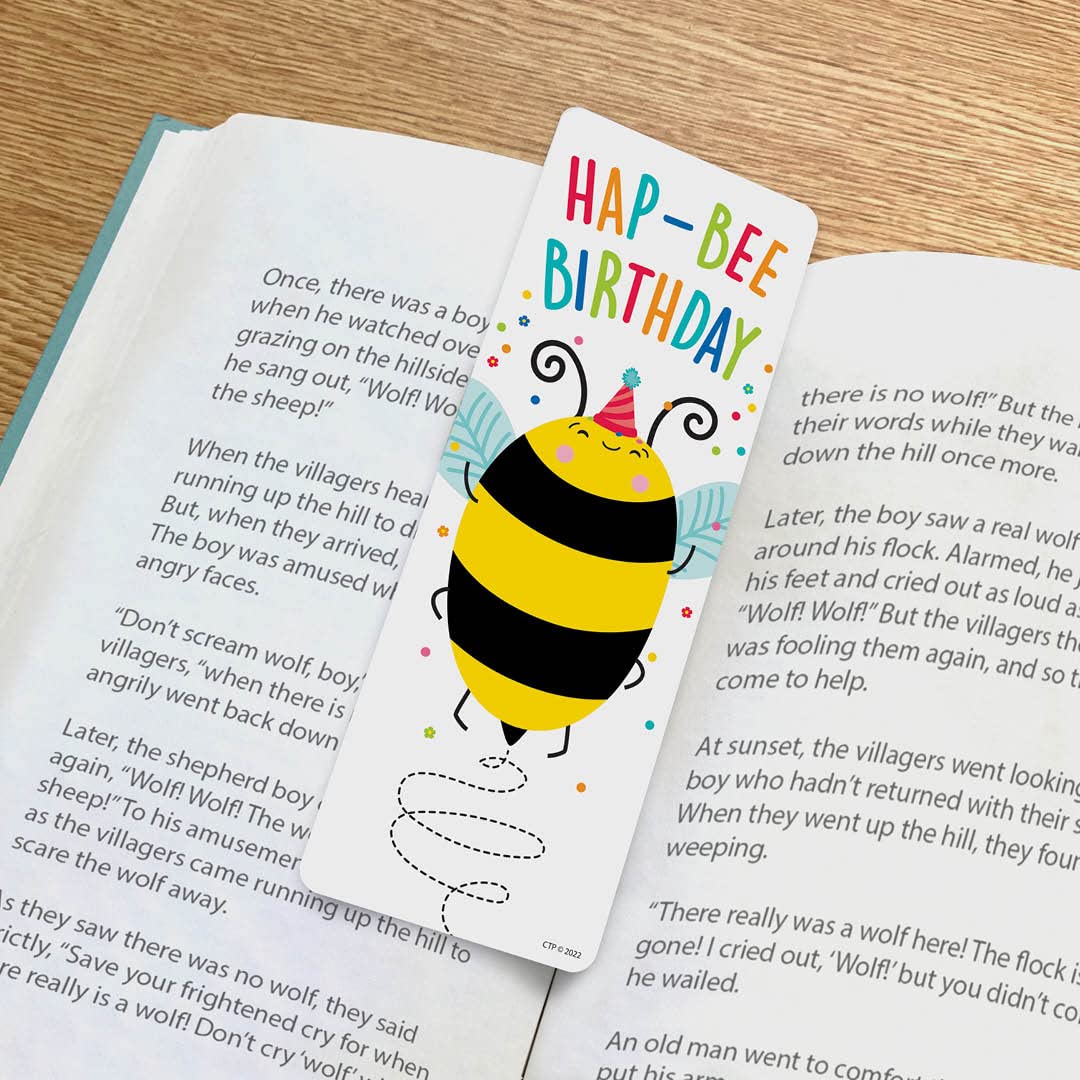 HAP-BEE
BIRTHDAY
CTP © 2022
Once, there was a boy
when he watched ove
grazing on the hillside
he sang out, “Wolf! Wo
the sheep!”
When the villagers hea
running up the hill to d
But, when they arrived,
The boy was amused w
angry faces.
“Don’t scream wolf, boy,”
villagers, “when there is
angrily went back down
Later, the shepherd boy
again, “Wolf! Wolf! The w
sheep!” To his amusemen
as the villagers came running up the hill to
scare the wolf away.
As they saw there was no wolf, they said
rictly, “Save your frightened cry for when
re really is a wolf! Don’t cry ‘wolf’
there is no wolf!” But the
their words while they wa
down the hill once more.
Later, the boy saw a real wolf
around his flock. Alarmed, he j
his feet and cried out as loud as
“Wolf! Wolf!” But the villagers th
was fooling them again, and so t
come to help.
At sunset, the villagers went looking
boy who hadn’t returned with their s
When they went up the hill, they foun
weeping.
“There really was a wolf here! The flock is
gone! I cried out, ‘Wolf!’ but you didn’t co
he wailed.
An old man went to comfort
put his arm